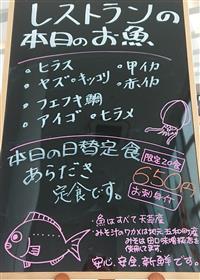 レストランの
本日のお魚
・ヒラス ・甲イカ
・ヤズ・キッコリ ・赤イカ
・フエフキ鯛
・アイゴ・ヒラメ
本日の日替定食
限定20食
あらだき
定食です。
650円
お刺身付
・魚はすべて天草産
・みそ汁のワカメは地元五和町産
みそは田口味噌
使用してます。
安心、安全、新鮮です。